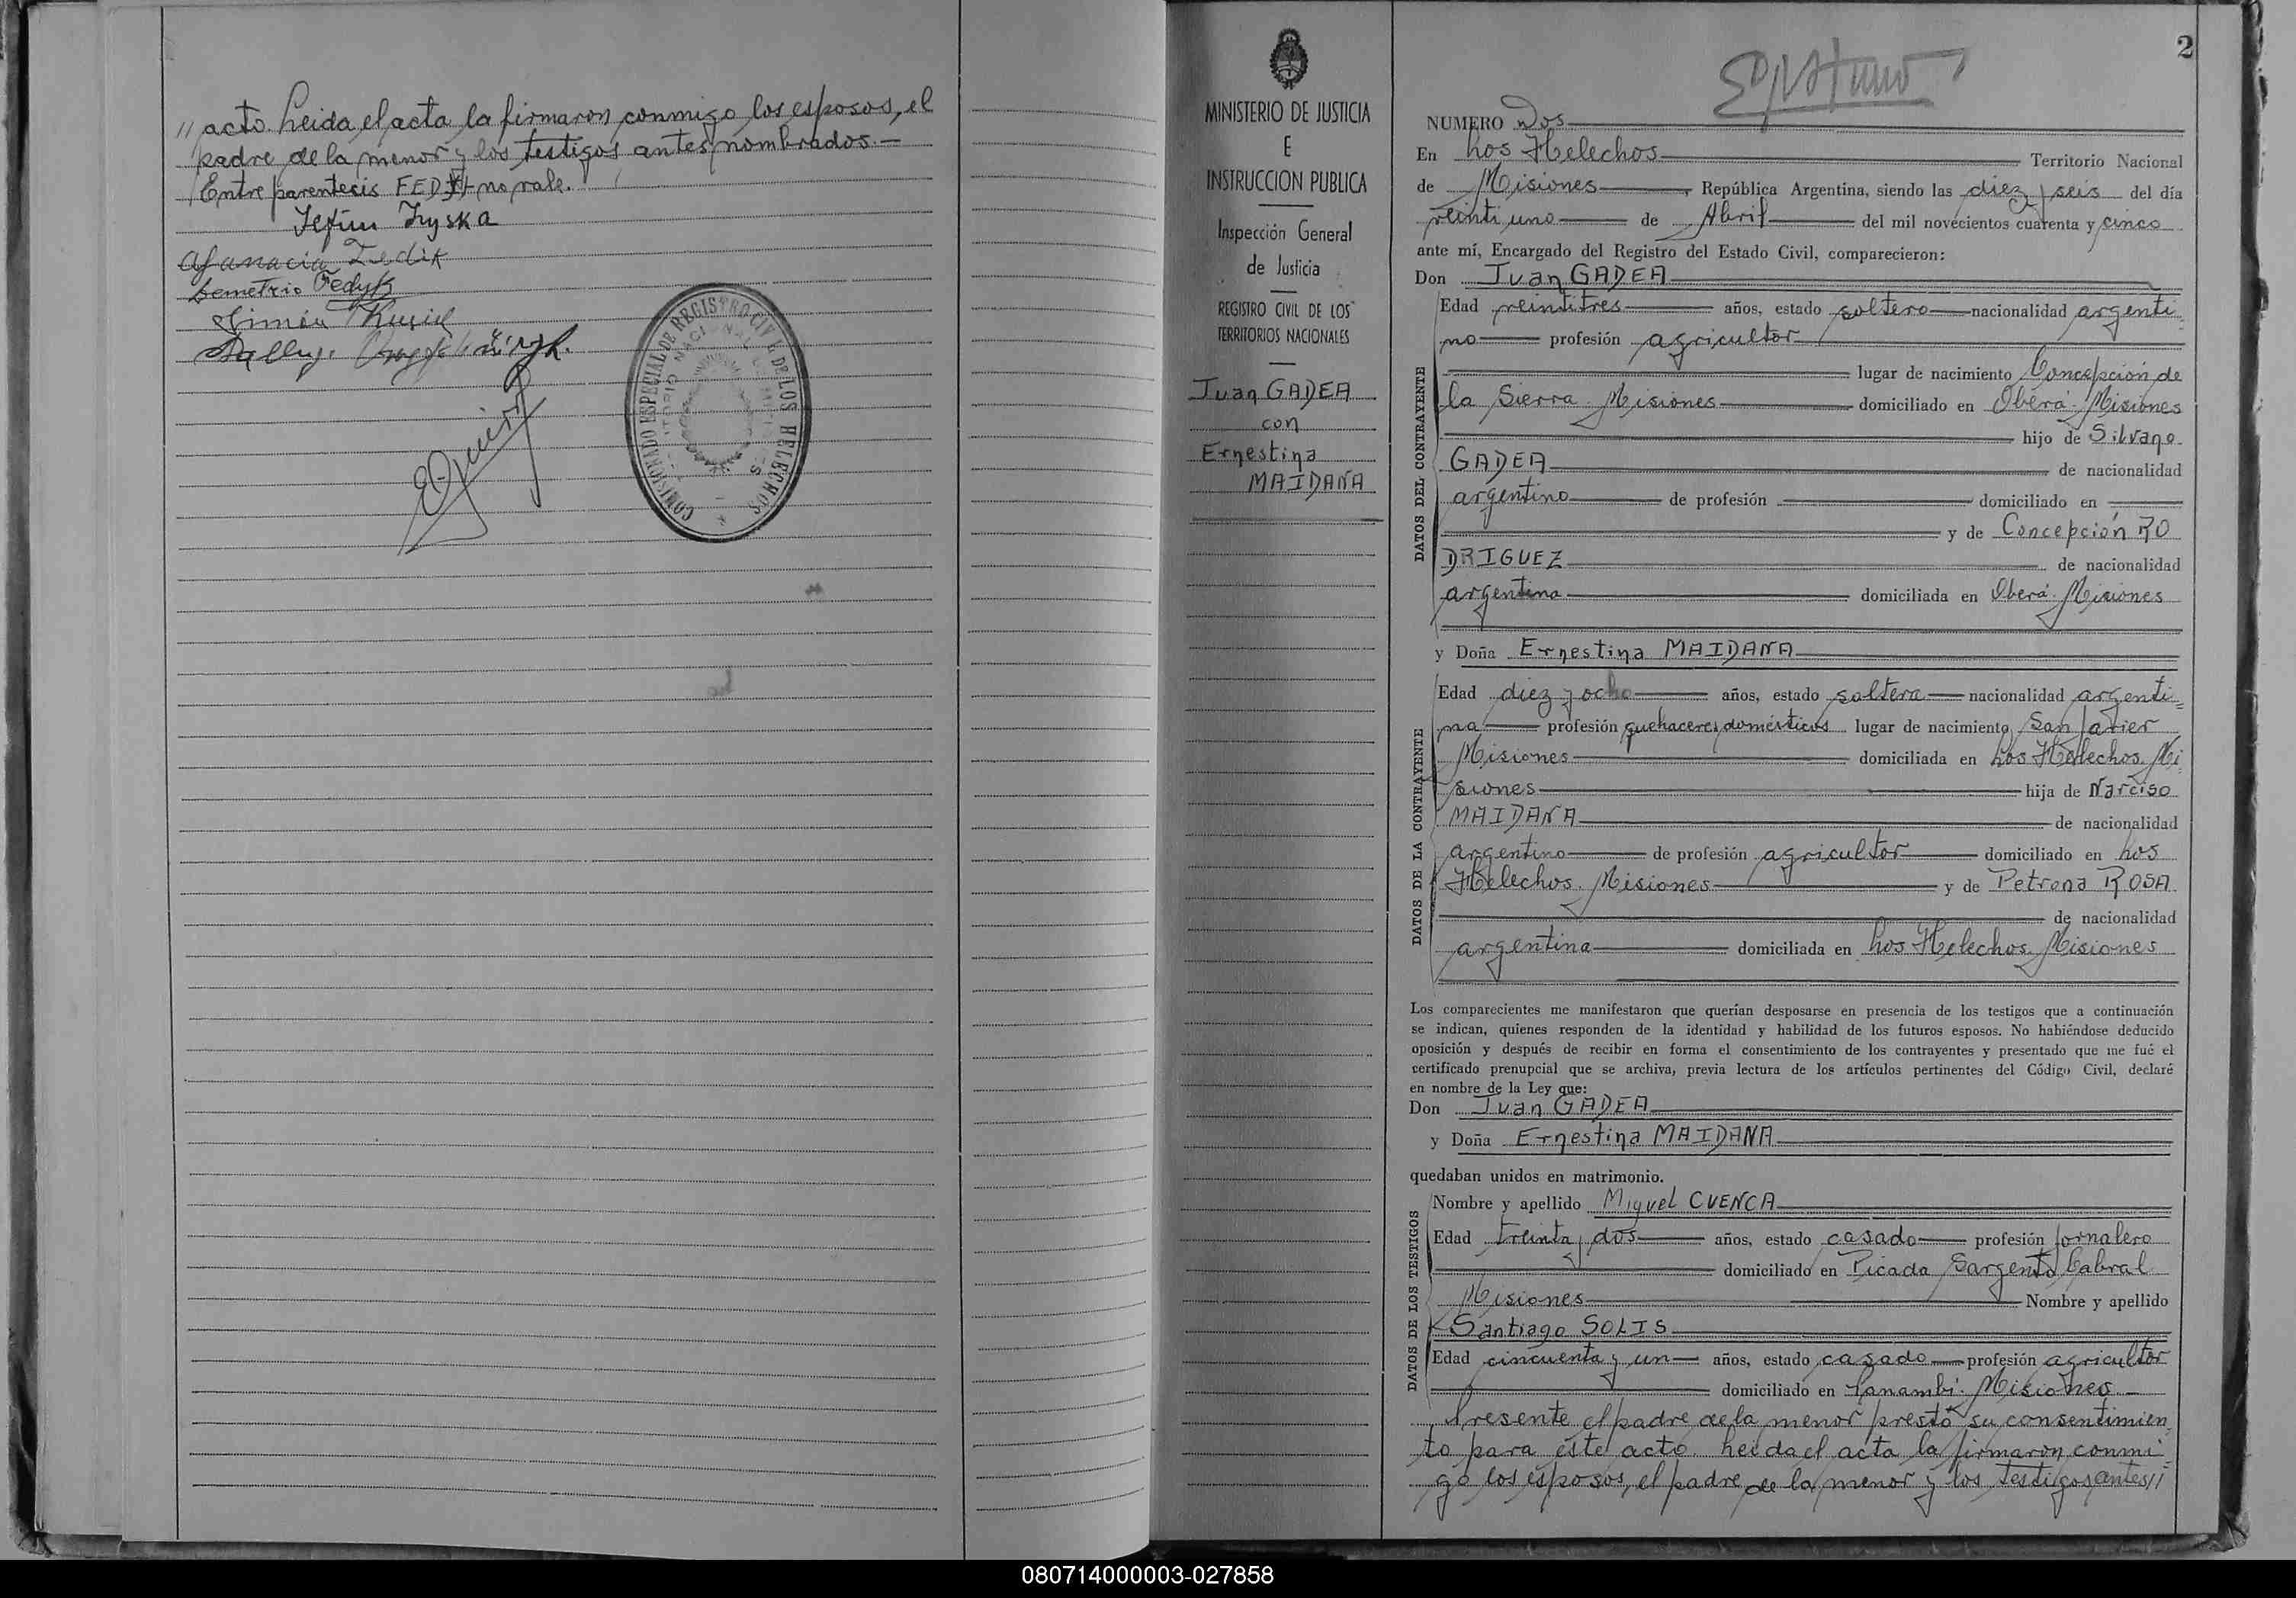 // acto. Leida el acta la firmaron conmigo los esposos, el
padre de la menor y los testigos antes nombrados.—
Entre parentecis FEDY no vale.
Demetrio Fedyk
COMISIONADO ESPECIAL DE REGISTRO CIVIL DE LOS HELECHOS
2
MINISTERIO DE JUSTICIA
E
INSTRUCCION PUBLICA
Inspección General
de Justicia
REGISTRO CIVIL DE LOS
TERRITORIOS NACIONALES
Juan GADEA
con
Ernestina
MAIDANA
NUMERO Dos
En Los Helechos Territorio Nacional
de Misiones, República Argentina, siendo las diez y seis del día
veinti uno de Abril del mil novecientos cuarenta y cinco
ante mí, Encargado del Registro del Estado Civil, comparecieron:
Don Juan GADEA
DATOS DEL CONTRAYENTE
Edad veintitres años, estado soltero nacionalidad argenti
no profesión agricultor
lugar de nacimiento Concepción de
la Sierra. Misiones domiciliado en Oberá. Misiones
hijo de Silvano
GADEA de nacionalidad
argentino de profesión domiciliado en
y de Concepción RO
DRIGUEZ de nacionalidad
argentina domiciliada en Oberá. Misiones
y Doña Ernestina MAIDANA
DATOS DE LA CONTRAYENTE
Edad diez y ocho años, estado soltera nacionalidad argenti=
na profesión quehaceres domésticos lugar de nacimiento San Javier
Misiones domiciliada en Los Helechos. Mi
siones hija de Narciso
MAIDANA de nacionalidad
argentino de profesión agricultor domiciliado en Los
Helechos. Misiones y de Petrona ROSA
de nacionalidad
argentina domiciliada en Los Helechos. Misiones
Los comparecientes me manifestaron que querían desposarse en presencia de los testigos que a continuación
se indican, quienes responden de la identidad y habilidad de los futuros esposos. No habiéndose deducido
oposición y después de recibir en forma el consentimiento de los contrayentes y presentado que me fué el
certificado prenupcial que se archiva, previa lectura de los artículos pertinentes del Código Civil, declaré
en nombre de la Ley que:
Don Juan GADEA
y Doña Ernestina MAIDANA
quedaban unidos en matrimonio.
DATOS DE LOS TESTIGOS
Nombre y apellido Miguel CUENCA
Edad treinta y dos años, estado casado profesión jornalero
domiciliado en Picada Sargento Cabral
Misiones Nombre y apellido
Santiago SOLIS
Edad cincuenta y un años, estado casado profesión agricultor
domiciliado en Panambí. Misiones
Presente el padre de la menor prestó su consentimien
to para este acto. Leida el acta la firmaron conmi
go los esposos, el padre de la menor y los testigos antes//
080714000003-027858